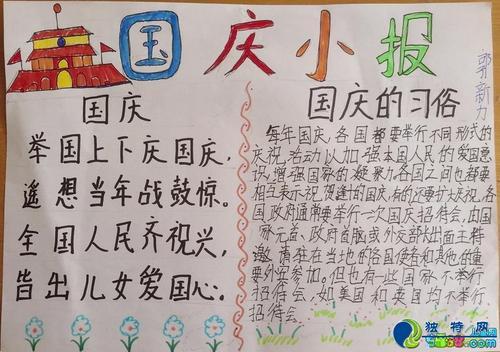 国庆小报
郭新力
国庆
举国上下庆国庆，
遥想当年战鼓惊。
全国人民齐祝兴，
皆出儿女爱国心。
国庆的习俗
每年国庆，各国都要举行不同形式的
庆祝活动以加强本国人民的爱国意
识，增强国家的凝聚力。各国之间也都要
相互表示祝贺逢的国庆，有的还要扩大庆祝，各
国政府通常要举行一次国庆招待会，由国
家元首、政府首脑或外交部长出面主持
邀请驻在当地的各国使者和其他的重
要外宾参加。但也有一些国家不举行
招待会，如美国和英国均不举行
招待会。
独特网